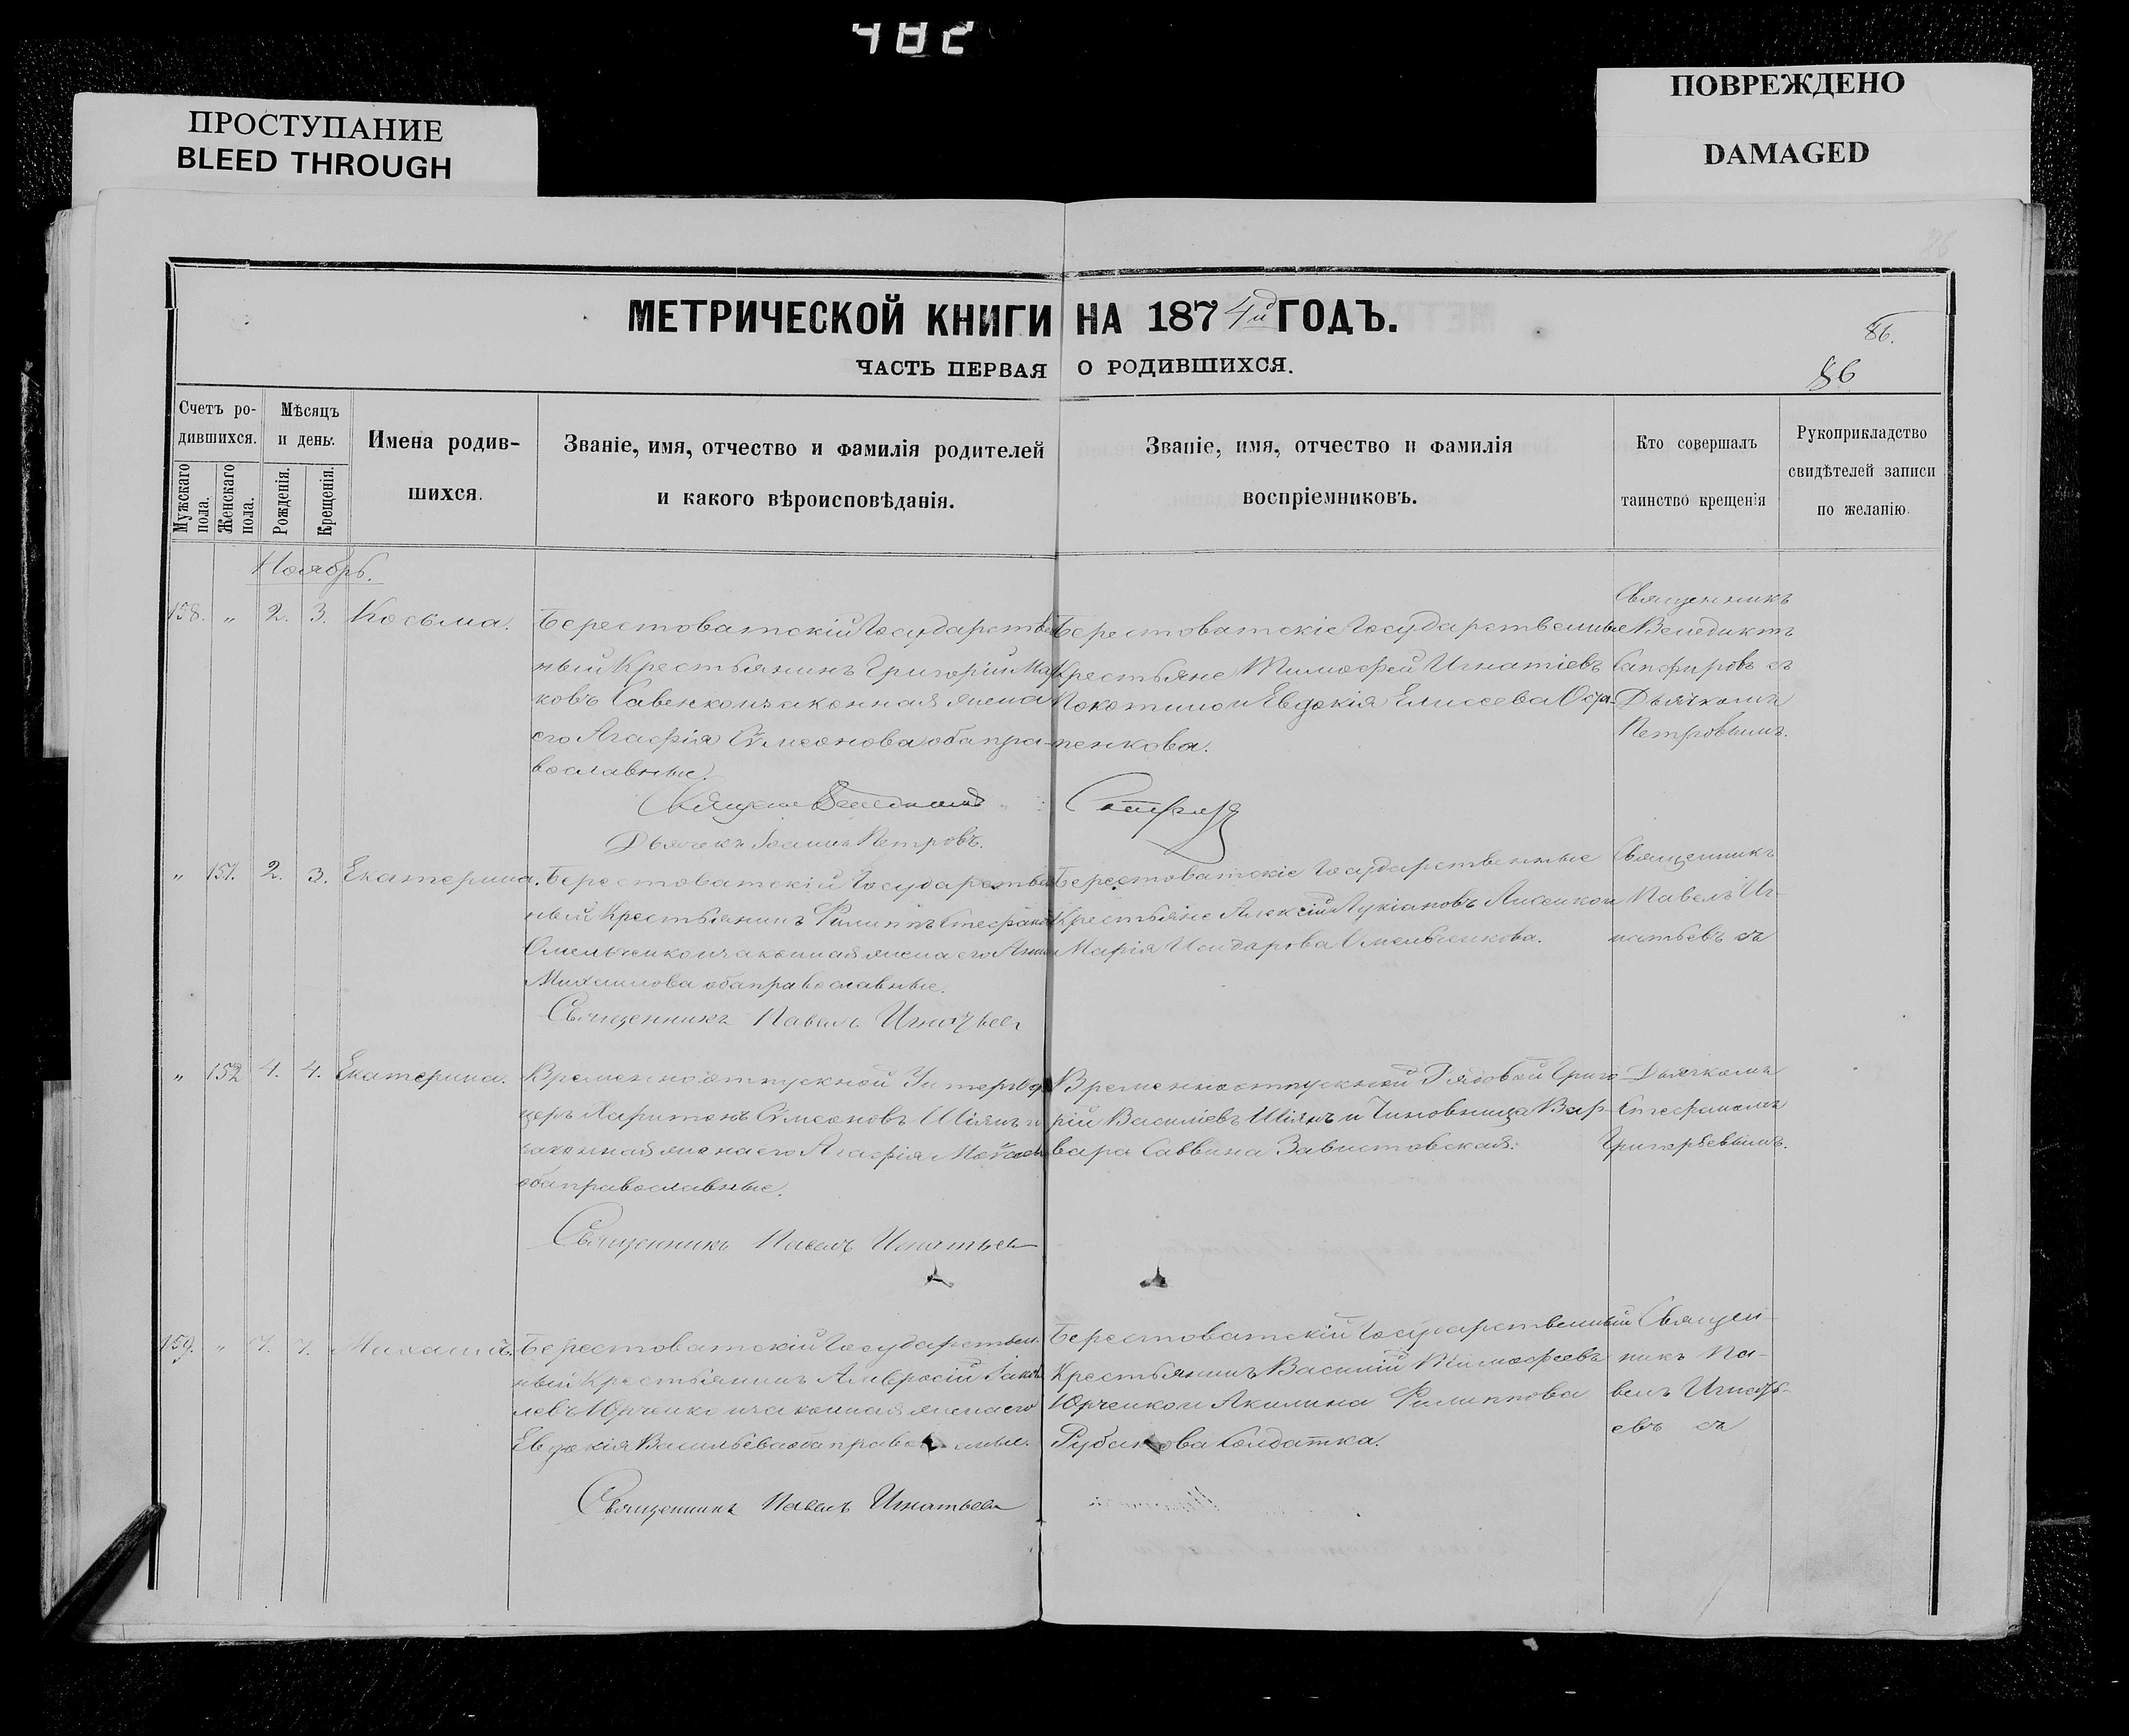 482
ПРОСТУПАНИЕ
BLEED THROUGH
ПОВРЕЖДЕНО
DAMAGED
МЕТРИЧЕСКОЙ КНИГИ НА 1874й ГОДЪ.
ЧАСТЬ ПЕРВАЯ О РОДИВШИХСЯ.
86.
86
Счетъ ро-
дившихся.
Мужскаго пола.
Женскаго пола.
Мѣсяцъ
и день.
Рожденія.
Крещенія.
Имена родив-
шихся.
Званіе, имя, отчество и фамилія родителей
и какого вѣроисповѣданія.
Званіе, имя, отчество и фамилія
воспріемниковъ.
Кто совершалъ
таинство крещенія
Рукоприкладство
свидѣтелей записи
по желанію.
Ноябрь.
158. " 2. 3. Косьма.
Берестоватскій Государствен
ный Крестьянинъ Григорій
ковъ Савенко и законная жена
его Агафія Сѵмеонова оба пра-
вославные.
Берестоватскіе Государственные
Крестьяне Тимофей Игнатіевъ
Покотило и Евдокія Елисеева
пенкова.
Священникъ
Венедиктъ
Сапфировъ съ
Дьячкомъ
Петровымъ.
Венедиктъ Сапфировъ
Дьячекъ Іоаннъ Петровъ.
" 151. 2. 3. Екатерина.
Берестоватскій Государствен
ный Крестьянинъ Филиппъ Стефанов
Омельченко и законная жена его Анна
Михаилова оба православные.
Берестоватскіе Государственные
Крестьяне Алексій Лукіановъ Лисенко и
Марія Исидорова Омельченкова.
Священникъ
Павелъ Иг-
натьевъ съ
Священникъ Павелъ Игнатьевъ
" 152 4. 4. Екатерина.
Временноотпускной Унтеръ Оф
церъ Харитонъ Сѵмеоновъ Шіянъ и
законная жена его Агафія
оба православные.
Временноотпускной Рядовой Григо
рій Василіевъ Шіянъ и Чиновница Вар-
вара Саввина Завистовская:
Дьячкомъ
Стефаномъ
Григорьевымъ.
Священникъ Павелъ Игнатьевъ
159. " 7. 7. Михаилъ.
Берестоватскій Государствен.
ный Крестьянинъ Амвросій Іаков
левъ Юрченко и законная жена его
Евдокія Васильева оба
Берестоватскій Государственный
Крестьянинъ Василій Тимофеевъ
Юрченко и Акилина Филиппова
Рубанова Солдатка.
Священ-
никъ Па-
велъ Игнать-
евъ съ
Священникъ Павелъ Игнатьевъ